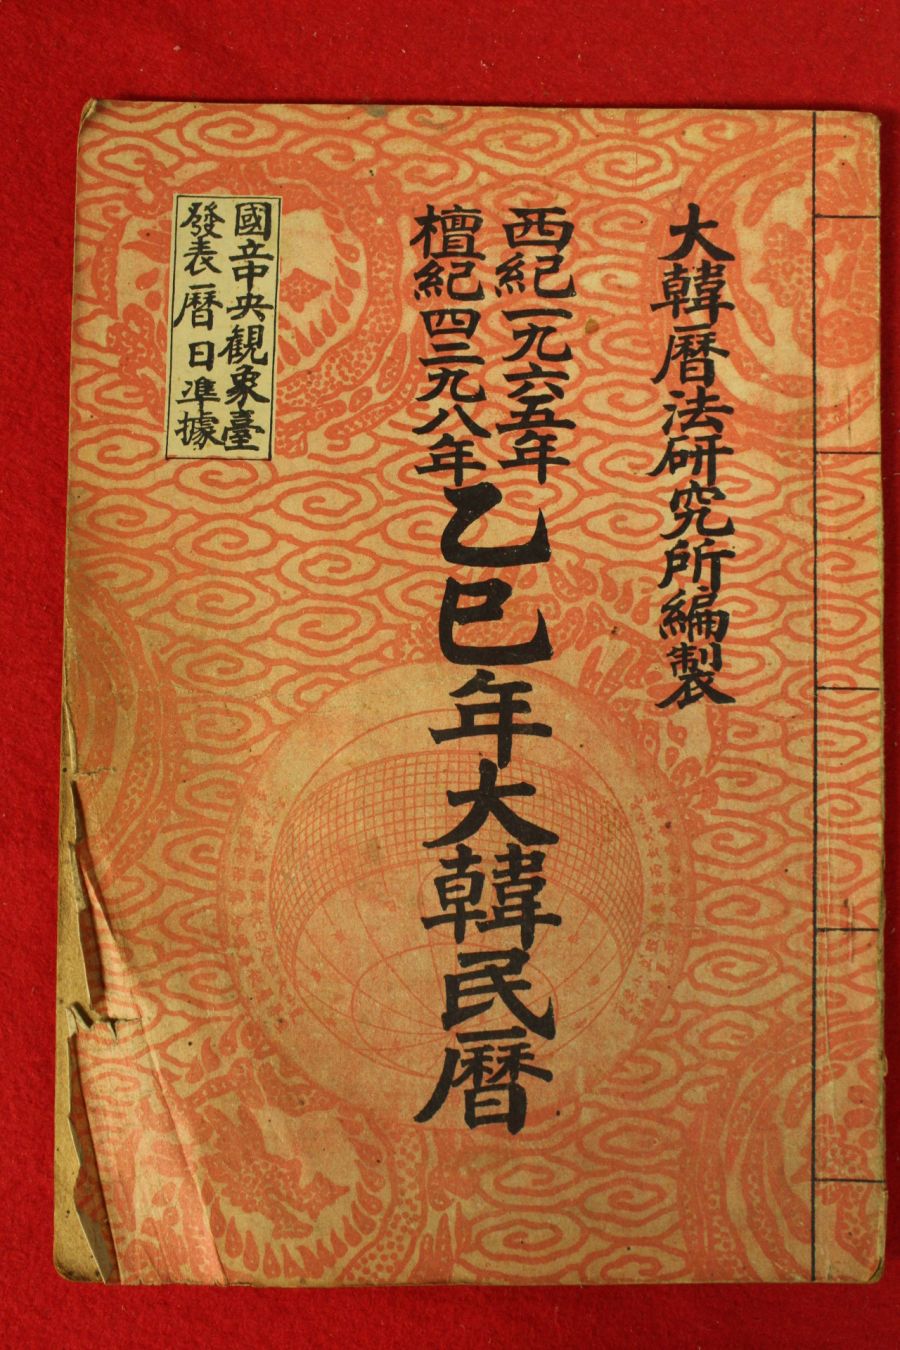 大韓曆法研究所編製
西紀一九六五年
檀紀四二九八年
乙巳年大韓民曆
國立中央觀象臺
發表曆日準據